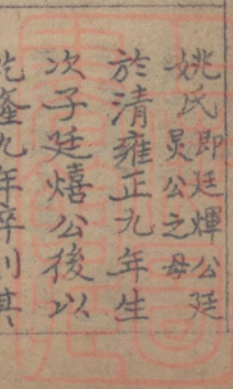 姚氏即廷煇公廷
炅公之母
於清雍正九年生
次子廷熺公後以
乾隆九年卒則其